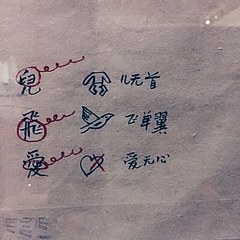 兒 儿无首
飛 飞单翼
愛 爱无心